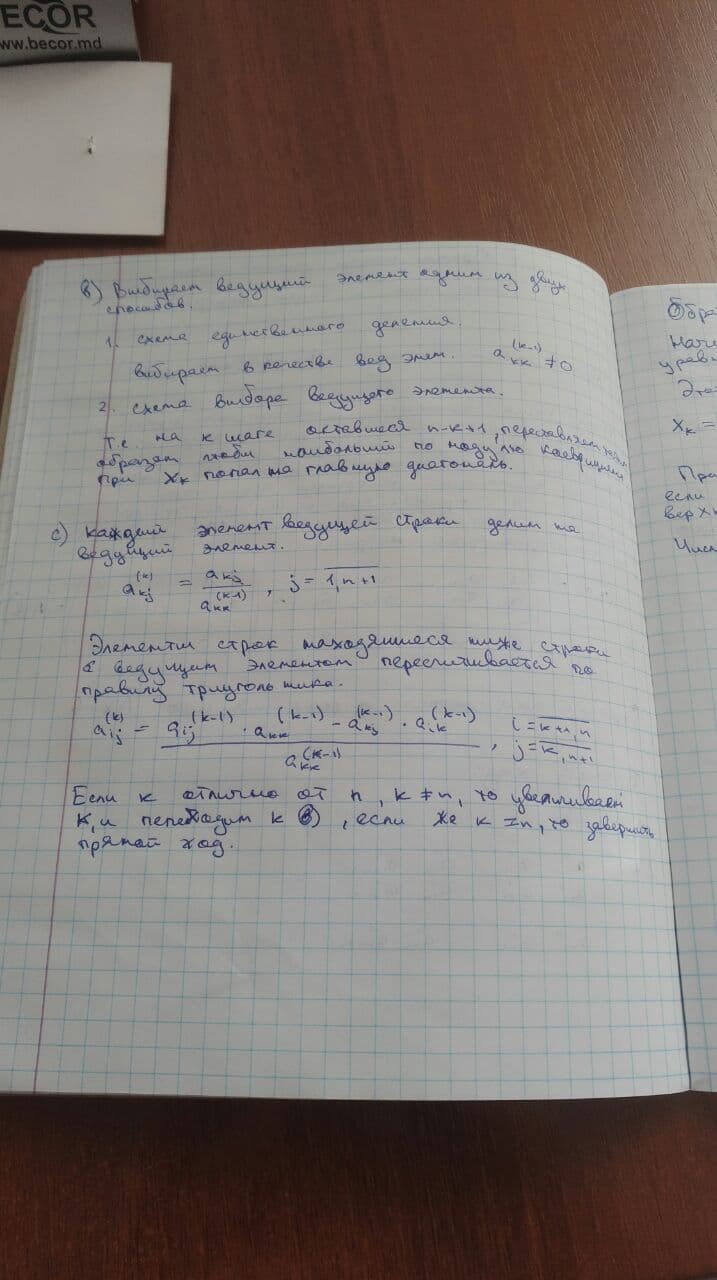 BECOR
ww.becor.md
в) Выбираем ведущий элемент одним из двух
способов.
1. схема единственного деления.
выбирает в качестве вед элем. a_kk^(k-1) ≠ 0
2. схема выбора ведущего элемента.
Т.е. на к шаге оставшиеся n-k+1, переставляем
образом чтобы наибольший по модулю
при X_k попал на главную диагональ.
с) каждый элемент ведущей строки делим на
ведущий элемент.
a_kj^(k) = a_kj / a_kk^(k-1) , j = 1, n+1
Элементы строк находящиеся ниже строки
с ведущим элементом пересчитывается по
правилу триугольника.
a_ij^(k) = a_ij^(k-1) · a_kk^(k-1) - a_kj^(k-1) · a_ik^(k-1) / a_kk^(k-1) , i = k+1, n
j = k, n+1
Если к отлично от n, k ≠ n, то увеличиваем
к, и переходим к в) , если же к = n, то завершить
прямой ход.
Обра
Начи
урав
Это
X_k =
При
если
вер хн
Числ